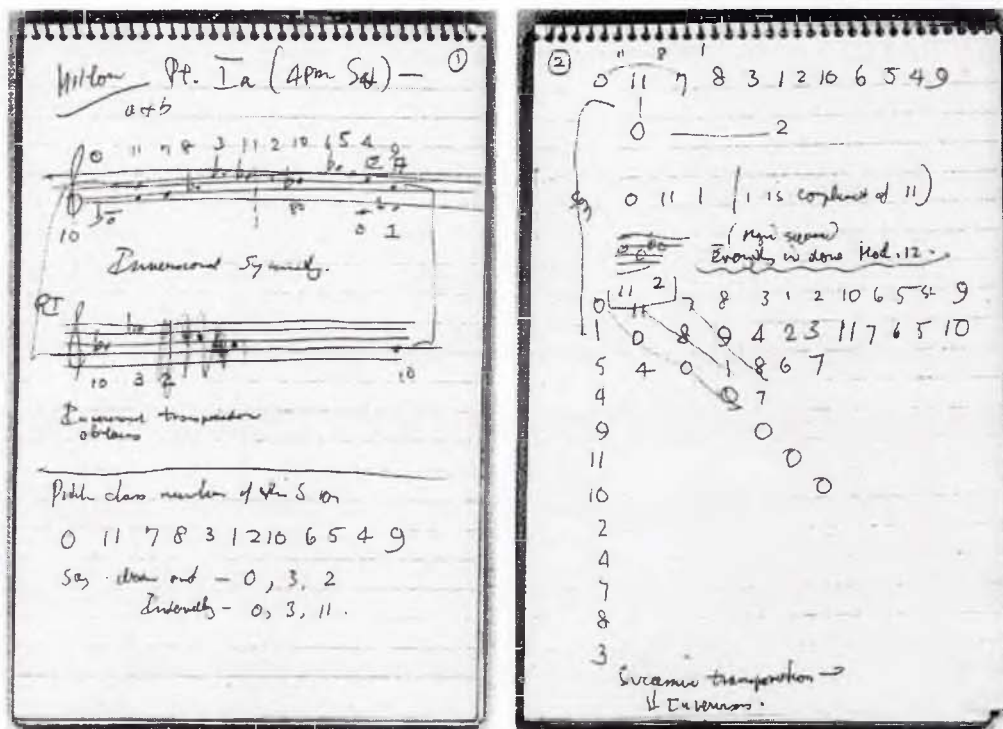 ①
Milton Pt. Ia (4pm Sat) —
a + b
0 11 7 8 3 11 2 10 6 5 4 9
10 0 I
Inversional Symmetry.
RI
10 3 2 10
Inversional transposition
obtains
Pitch class numbers of the
0 11 7 8 3 1 2 10 6 5 4 9
Say draw out — 0, 3, 2
Intervally — 0, 3, 11.
②
11 8 1
0 11 7 8 3 1 2 10 6 5 4 9
0 2
0 11 1 (1 is complement of 11)
(Magic square)
Everything is done Mod. 12.
11 2
0 11 7 8 3 1 2 10 6 5 9
1 0 8 9 4 2 3 11 7 6 5 10
5 4 0 1 8 6 7
4 0 7
9 0
11 0
10 0
2
4
7
8
3
Successive transposition →
Inversions.